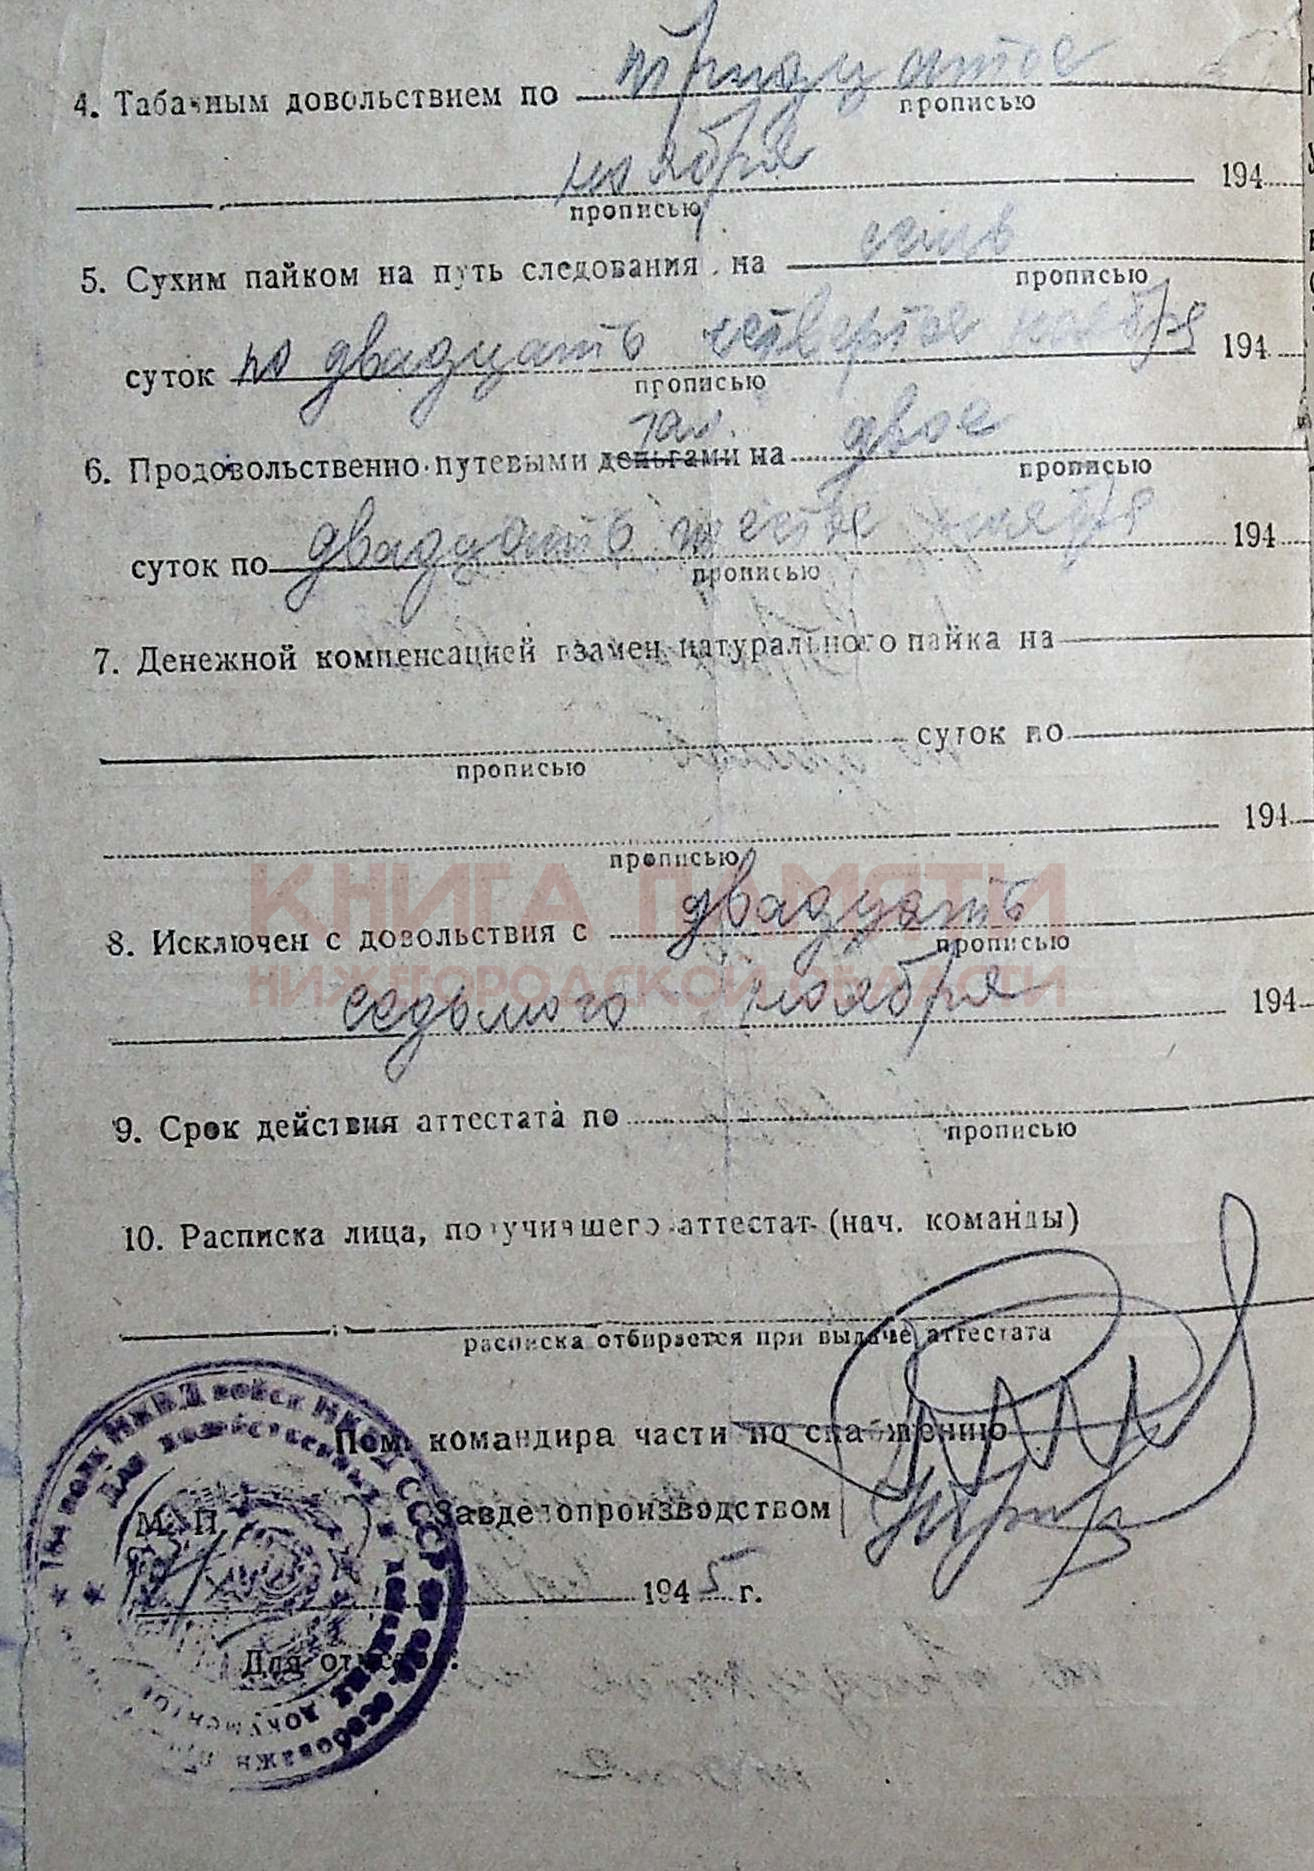 4. Табачным довольствием по тридцатое
прописью
ноября 194
прописью
5. Сухим пайком на путь следования на семь
прописью
суток по двадцать четвертое ноября 194
прописью
6. Продовольственно-путевыми деньгами на двое
прописью
суток по двадцать шестое ноября 194
прописью
7. Денежной компенсацией взамен натурального пайка на
суток по
прописью
194
прописью
КНИГА ПАМЯТИ
8. Исключен с довольствия с двадцать
прописью
НИЖЕГОРОДСКОЙ ОБЛАСТИ
седьмого ноября 194
9. Срок действия аттестата по
прописью
10. Расписка лица, получившего аттестат (нач. команды)
расписка отбирается при выдаче аттестата
Пом. командира части по снабжению
М. П.
Завделопроизводством
1945 г.
Для отметок:
полк НКВД войск НКВД СССР
Для хозяйственных
документов